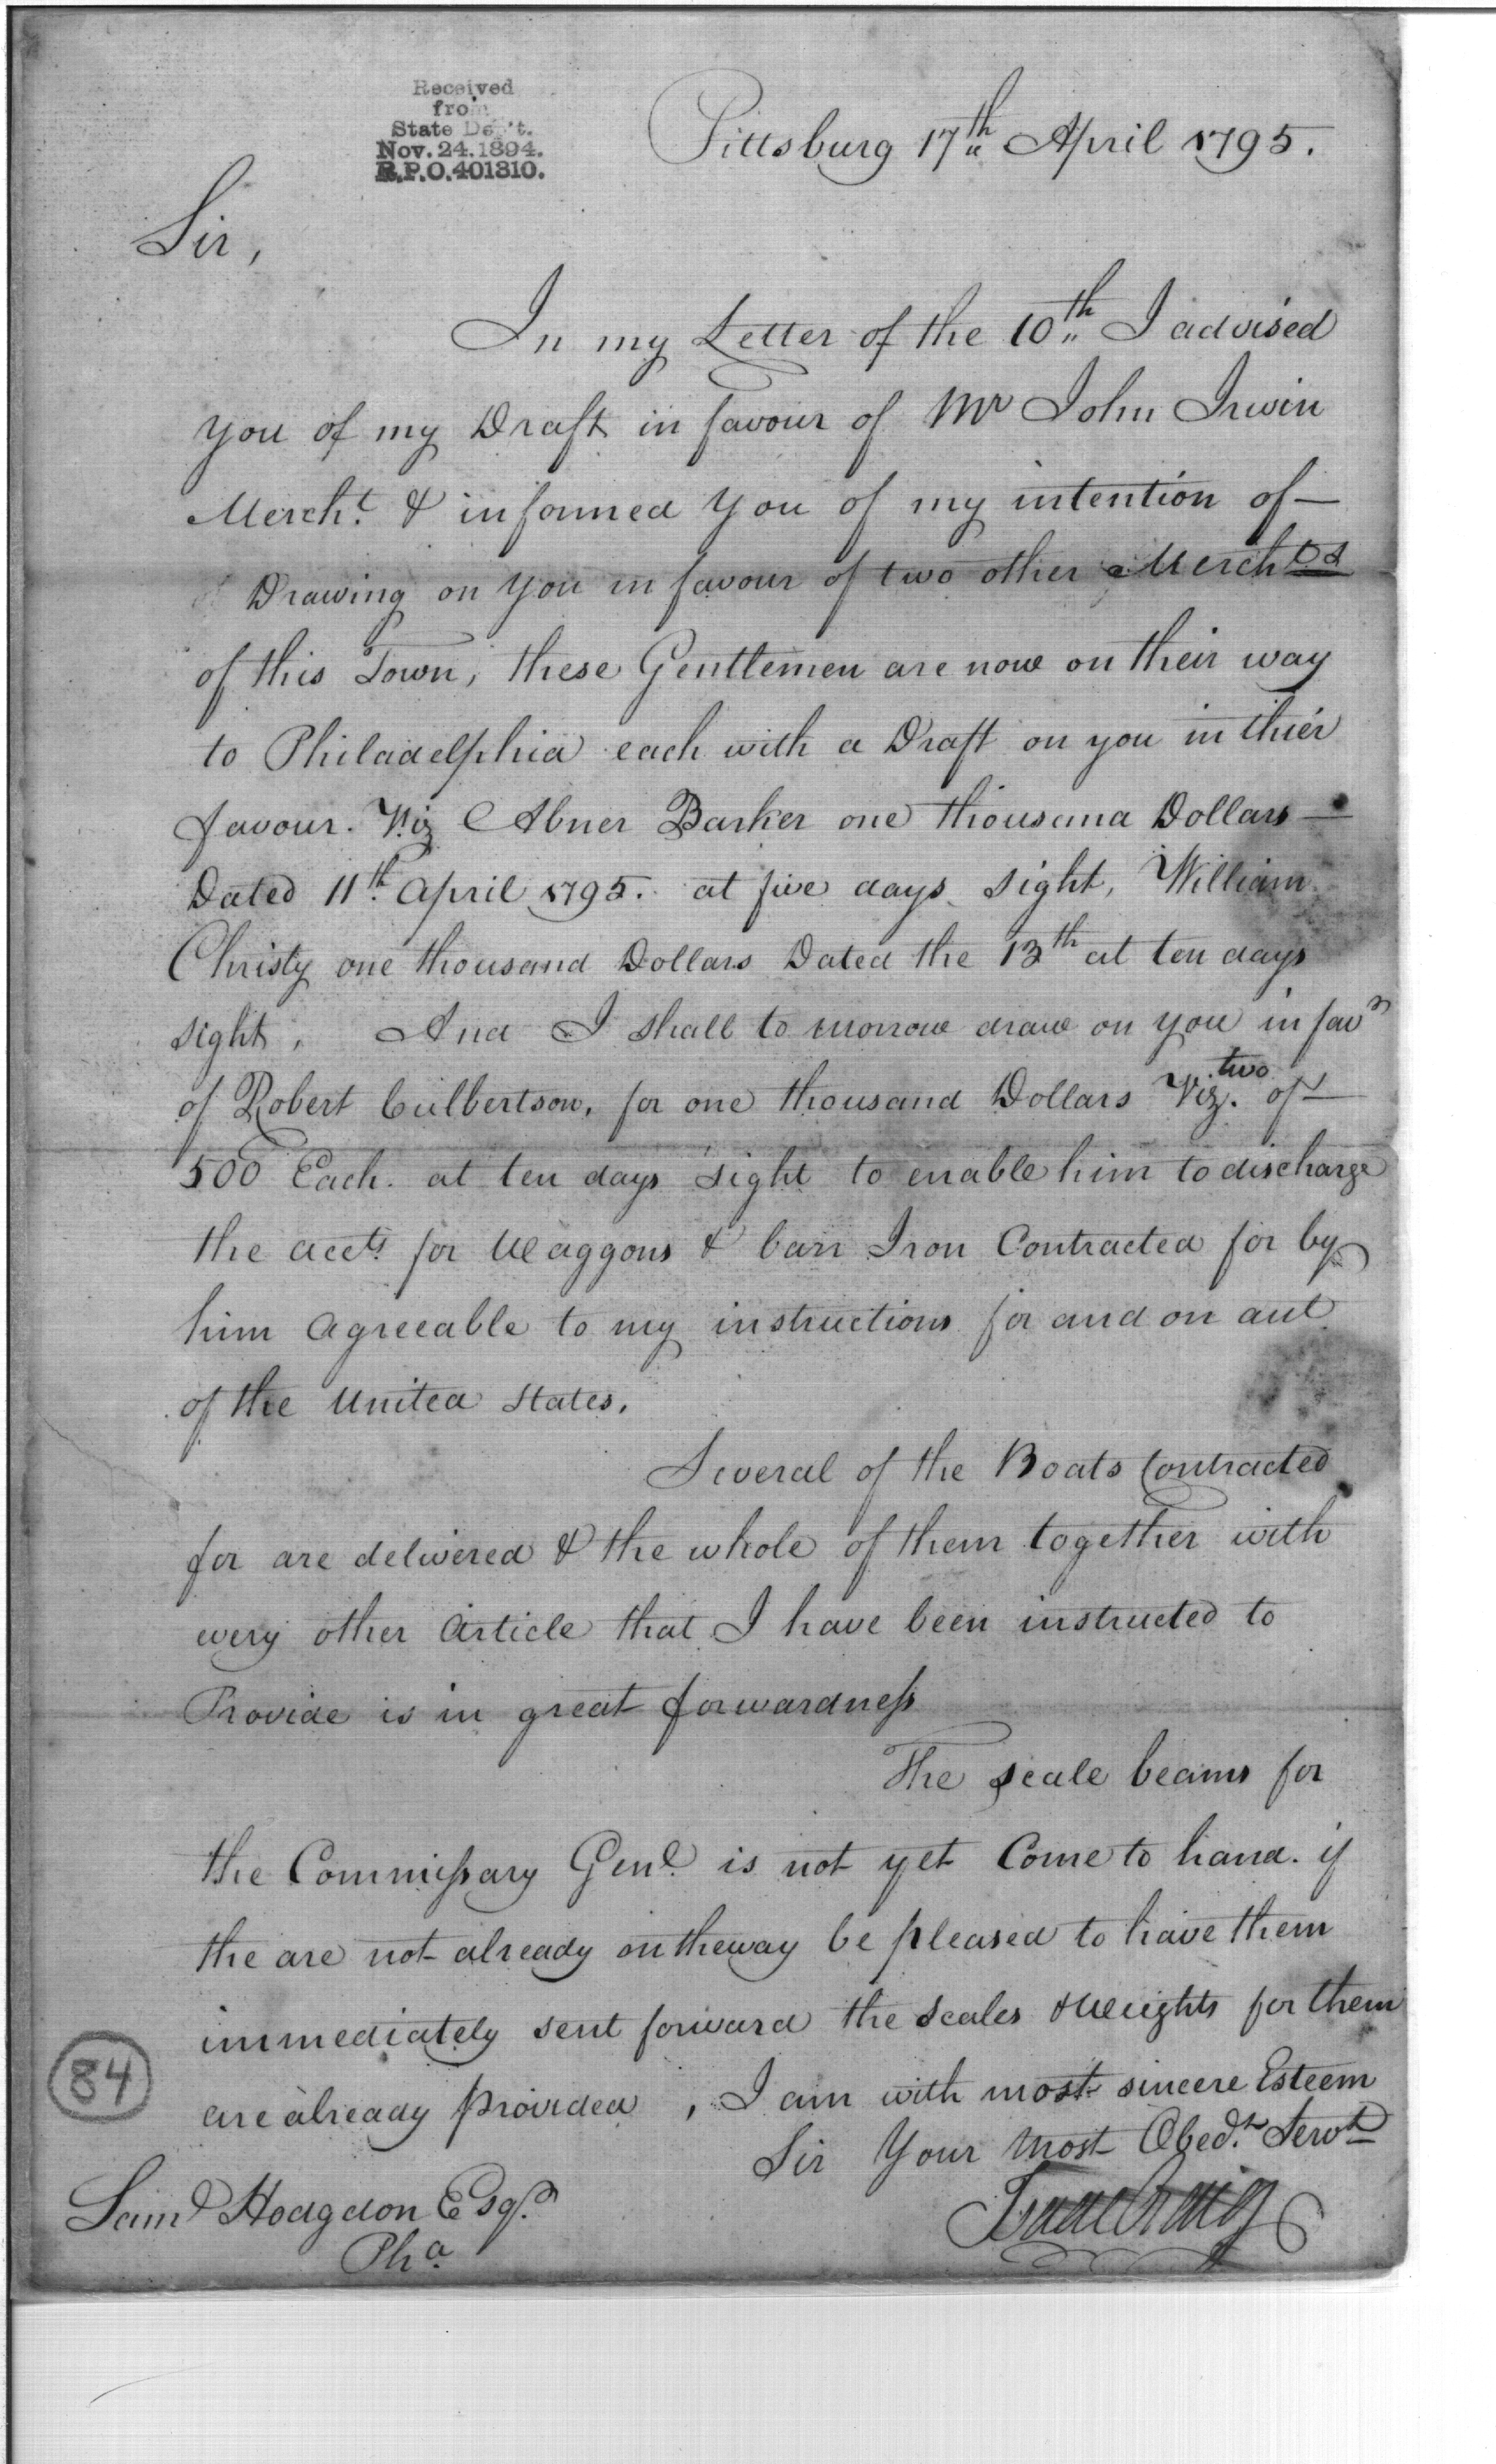 Received
from
State Dep't.
Nov. 24. 1894.
R.P.O. 401310.
Pittsburg 17th April 1795.
Sir,
In my Letter of the 10th I advised
you of my Draft in favour of Mr John Irwin
Mercht. & informed you of my intention of—
Drawing on you in favour of two other Merchts
of this Town, these Gentlemen are now on their way
to Philadelphia each with a Draft on you in thier
favour. Viz Abner Barker one thousand Dollars —
Dated 11th. April 1795. at five days sight, William
Christy one thousand Dollars Dated the 13th at ten days
sight, And I shall to morrow draw on you in favr
of Robert Culbertson, for one thousand Dollars Viz. two of—
500 Each. at ten days sight to enable him to discharge
the acctts for Waggons & barr Iron Contracted for by
him agreeable to my instructions for and on act
of the United States.
Several of the Boats Contracted
for are delivered & the whole of them together with
every other Article that I have been instructed to
Provide is in great forwardness
The scale beams for
the Commissary Genl. is not yet Come to hand. if
the are not already on the way be pleased to have them
immediately sent forward the scales & Weights for them
are already provided, I am with most sincere Esteem
Sir Your most Obedt. Servt
Isaac Craig
Saml Hodgdon Esqr.
Pha.
84